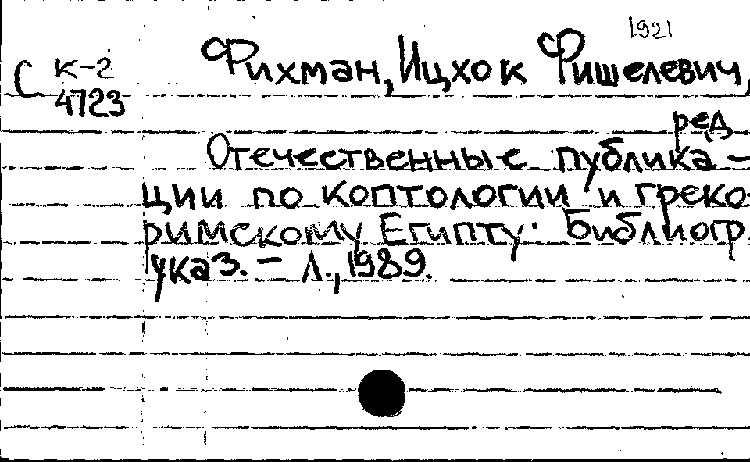 1921
С к-2 Фихман, Ицхок Фишелевич,
4723
ред
Отечественные публика-
ции по коптологии и греко
римскому Египту: Библиогр.
указ. - Л., 1989.